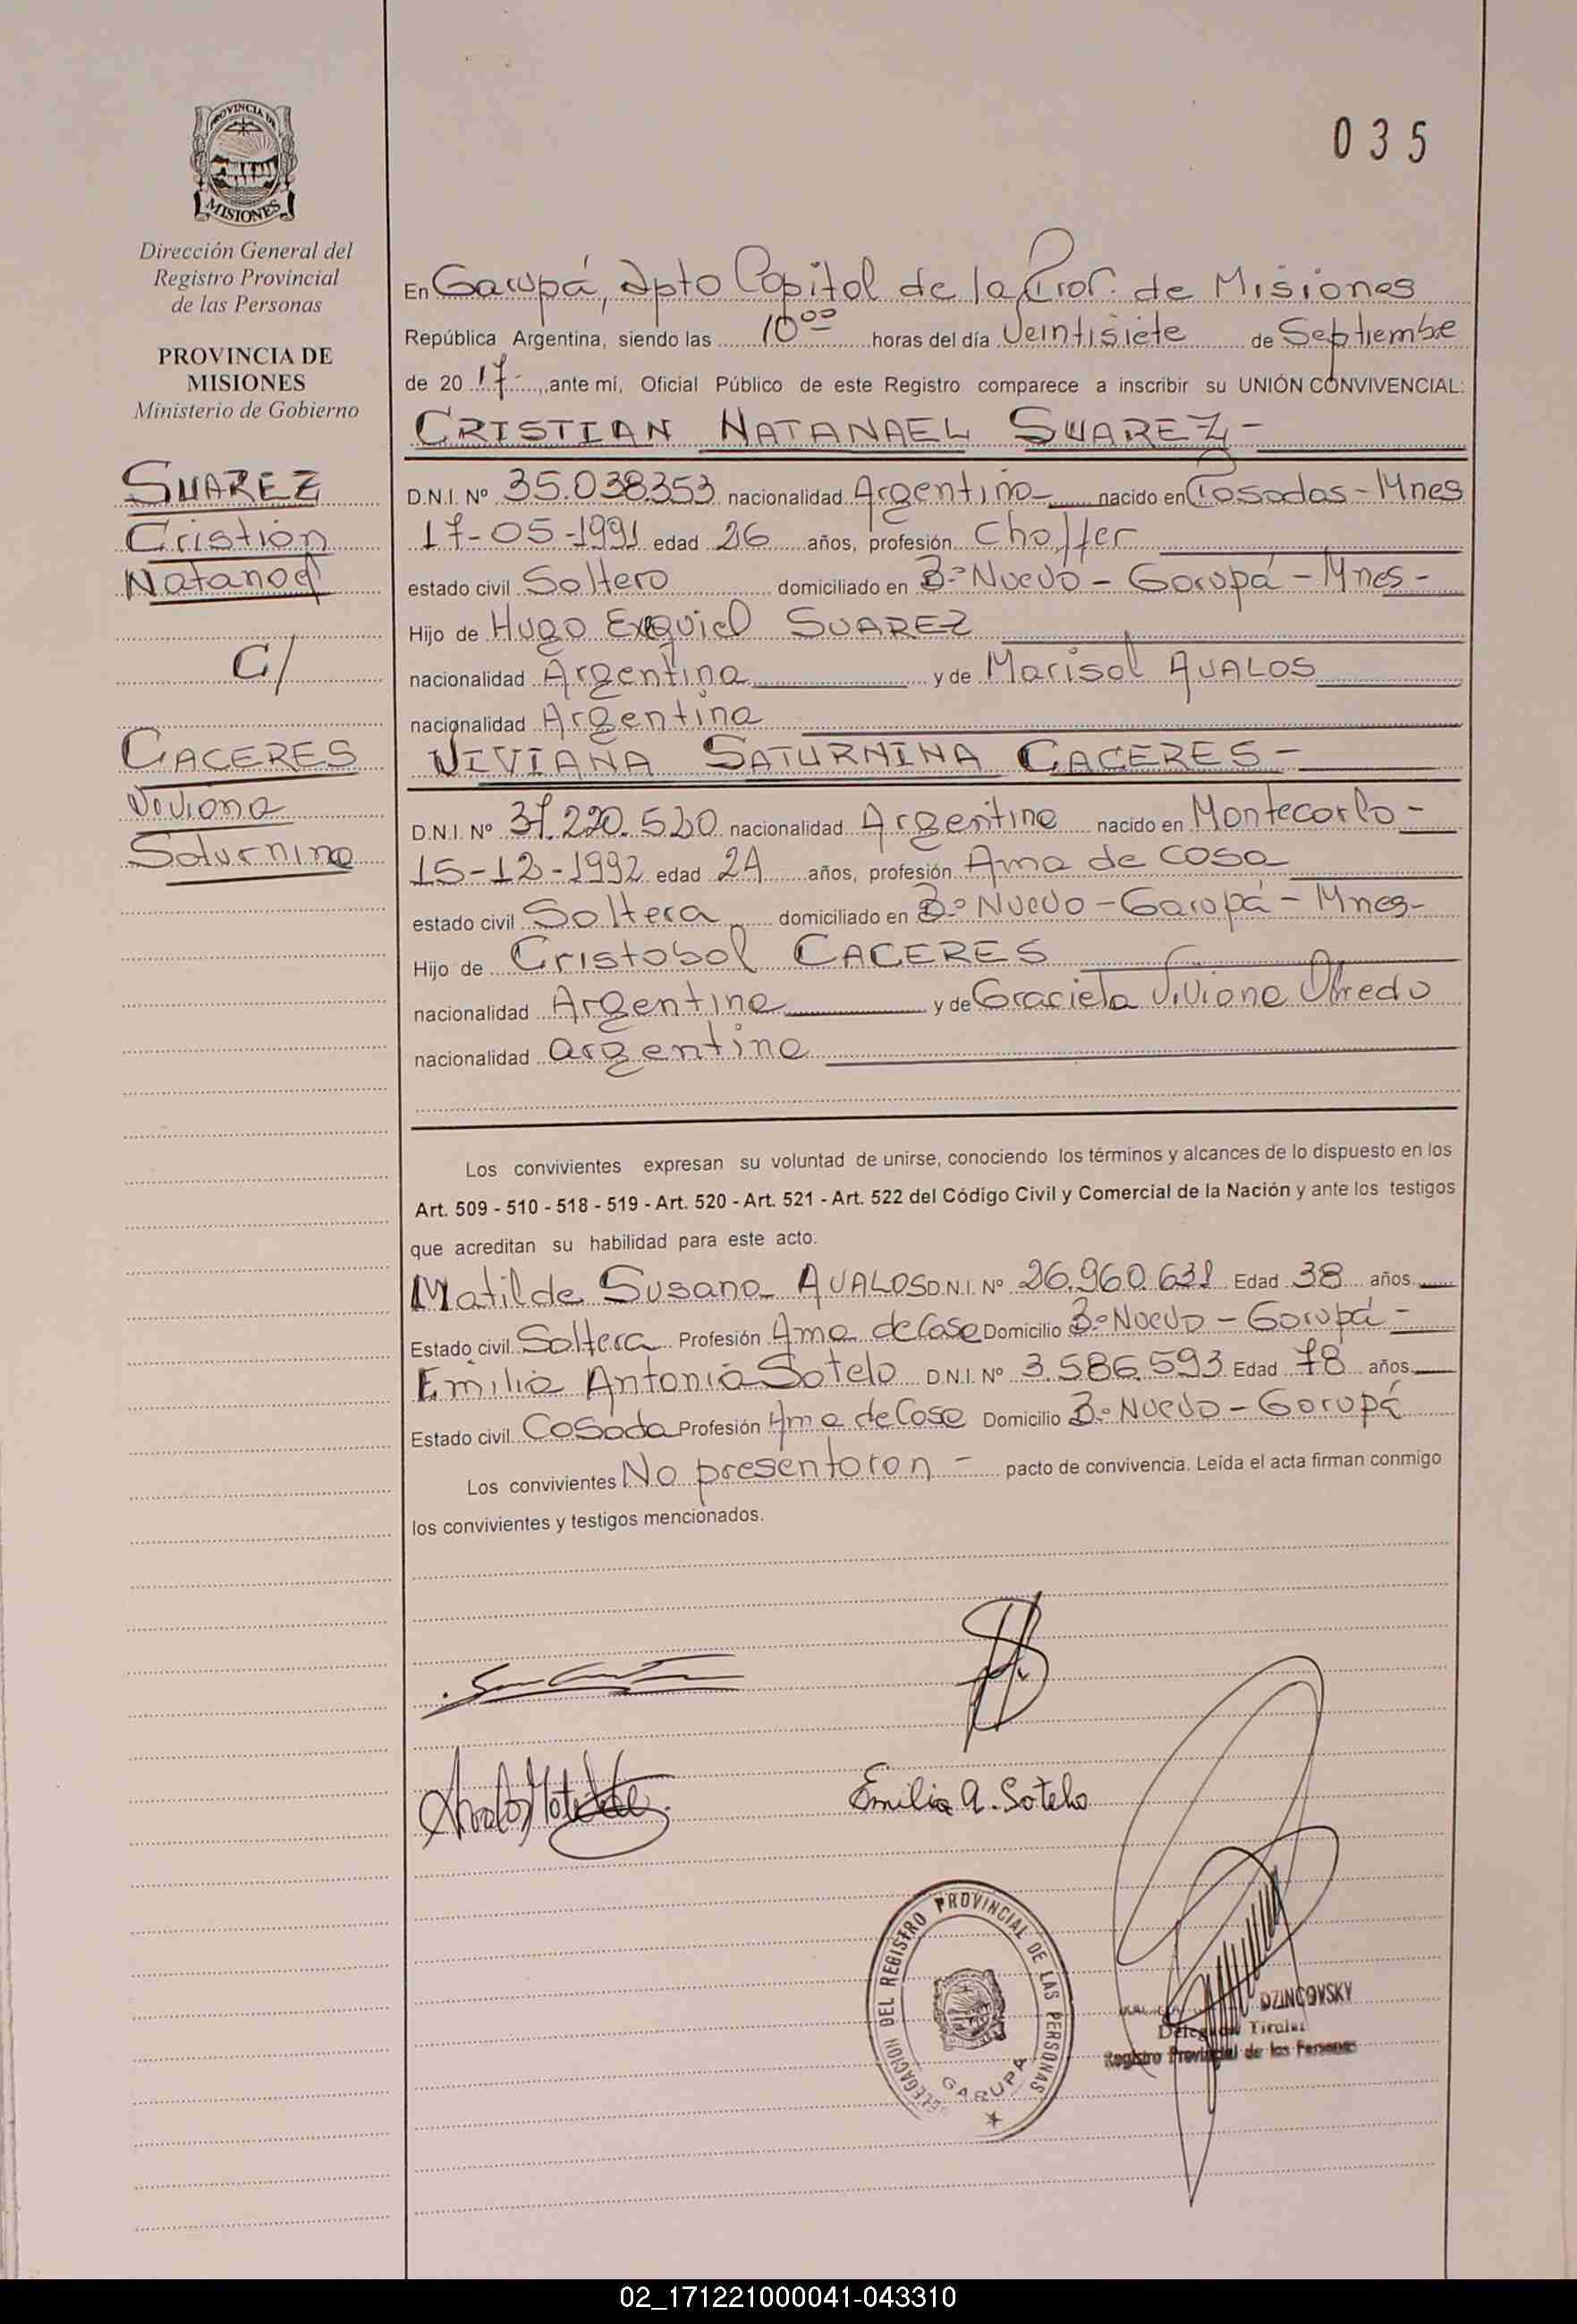 035
PROVINCIA DE
MISIONES
Dirección General del
Registro Provincial
de las Personas
PROVINCIA DE
MISIONES
Ministerio de Gobierno
SUAREZ
Cristian
Natanael
C/
CACERES
Viviana
Saturnina
En Garupá, Dpto Capital de la Prov. de Misiones
República Argentina, siendo las 10⁰⁰ horas del día Veintisiete de Septiembre
de 20 17- ,ante mí, Oficial Público de este Registro comparece a inscribir su UNIÓN CONVIVENCIAL:
CRISTIAN NATANAEL SUAREZ-
D.N.I. Nº 35.038.353 nacionalidad Argentina nacido en Posadas-Mnes
17-05-1991 edad 26 años, profesión Choffer
estado civil Soltero domiciliado en Bº Nuevo - Garupá - Mnes-
Hijo de Hugo Exequiel SUAREZ
nacionalidad Argentina y de Marisol AVALOS
nacionalidad Argentina
VIVIANA SATURNINA CACERES-
D.N.I. Nº 37.220.520 nacionalidad Argentina nacido en Montecarlo-
15-12-1992 edad 24 años, profesión Ama de casa
estado civil Soltera domiciliado en Bº Nuevo - Garupá - Mnes-
Hijo de Cristobal CACERES
nacionalidad Argentina y de Graciela Viviana
nacionalidad argentina
Los convivientes expresan su voluntad de unirse, conociendo los términos y alcances de lo dispuesto en los
Art. 509 - 510 - 518 - 519 - Art. 520 - Art. 521 - Art. 522 del Código Civil y Comercial de la Nación y ante los testigos
que acreditan su habilidad para este acto.
Matilde Susana AVALOS D.N.I. Nº 26.960.631 Edad 38 años
Estado civil Soltera Profesión Ama de Casa Domicilio Bº Nuevo - Garupá -
Emilia Antonia Sotelo D.N.I. Nº 3.586.593 Edad 78 años
Estado civil Casada Profesión Ama de Casa Domicilio Bº Nuevo - Garupá
Los convivientes No presentaron - pacto de convivencia. Leída el acta firman conmigo
los convivientes y testigos mencionados.
Avalos Matilde
Emilia A. Sotelo
DELEGACION DEL REGISTRO PROVINCIAL DE LAS PERSONAS
GARUPA
DZINCOVSKY
Delegada Titular
Registro Provincial de las Personas
02_171221000041-043310